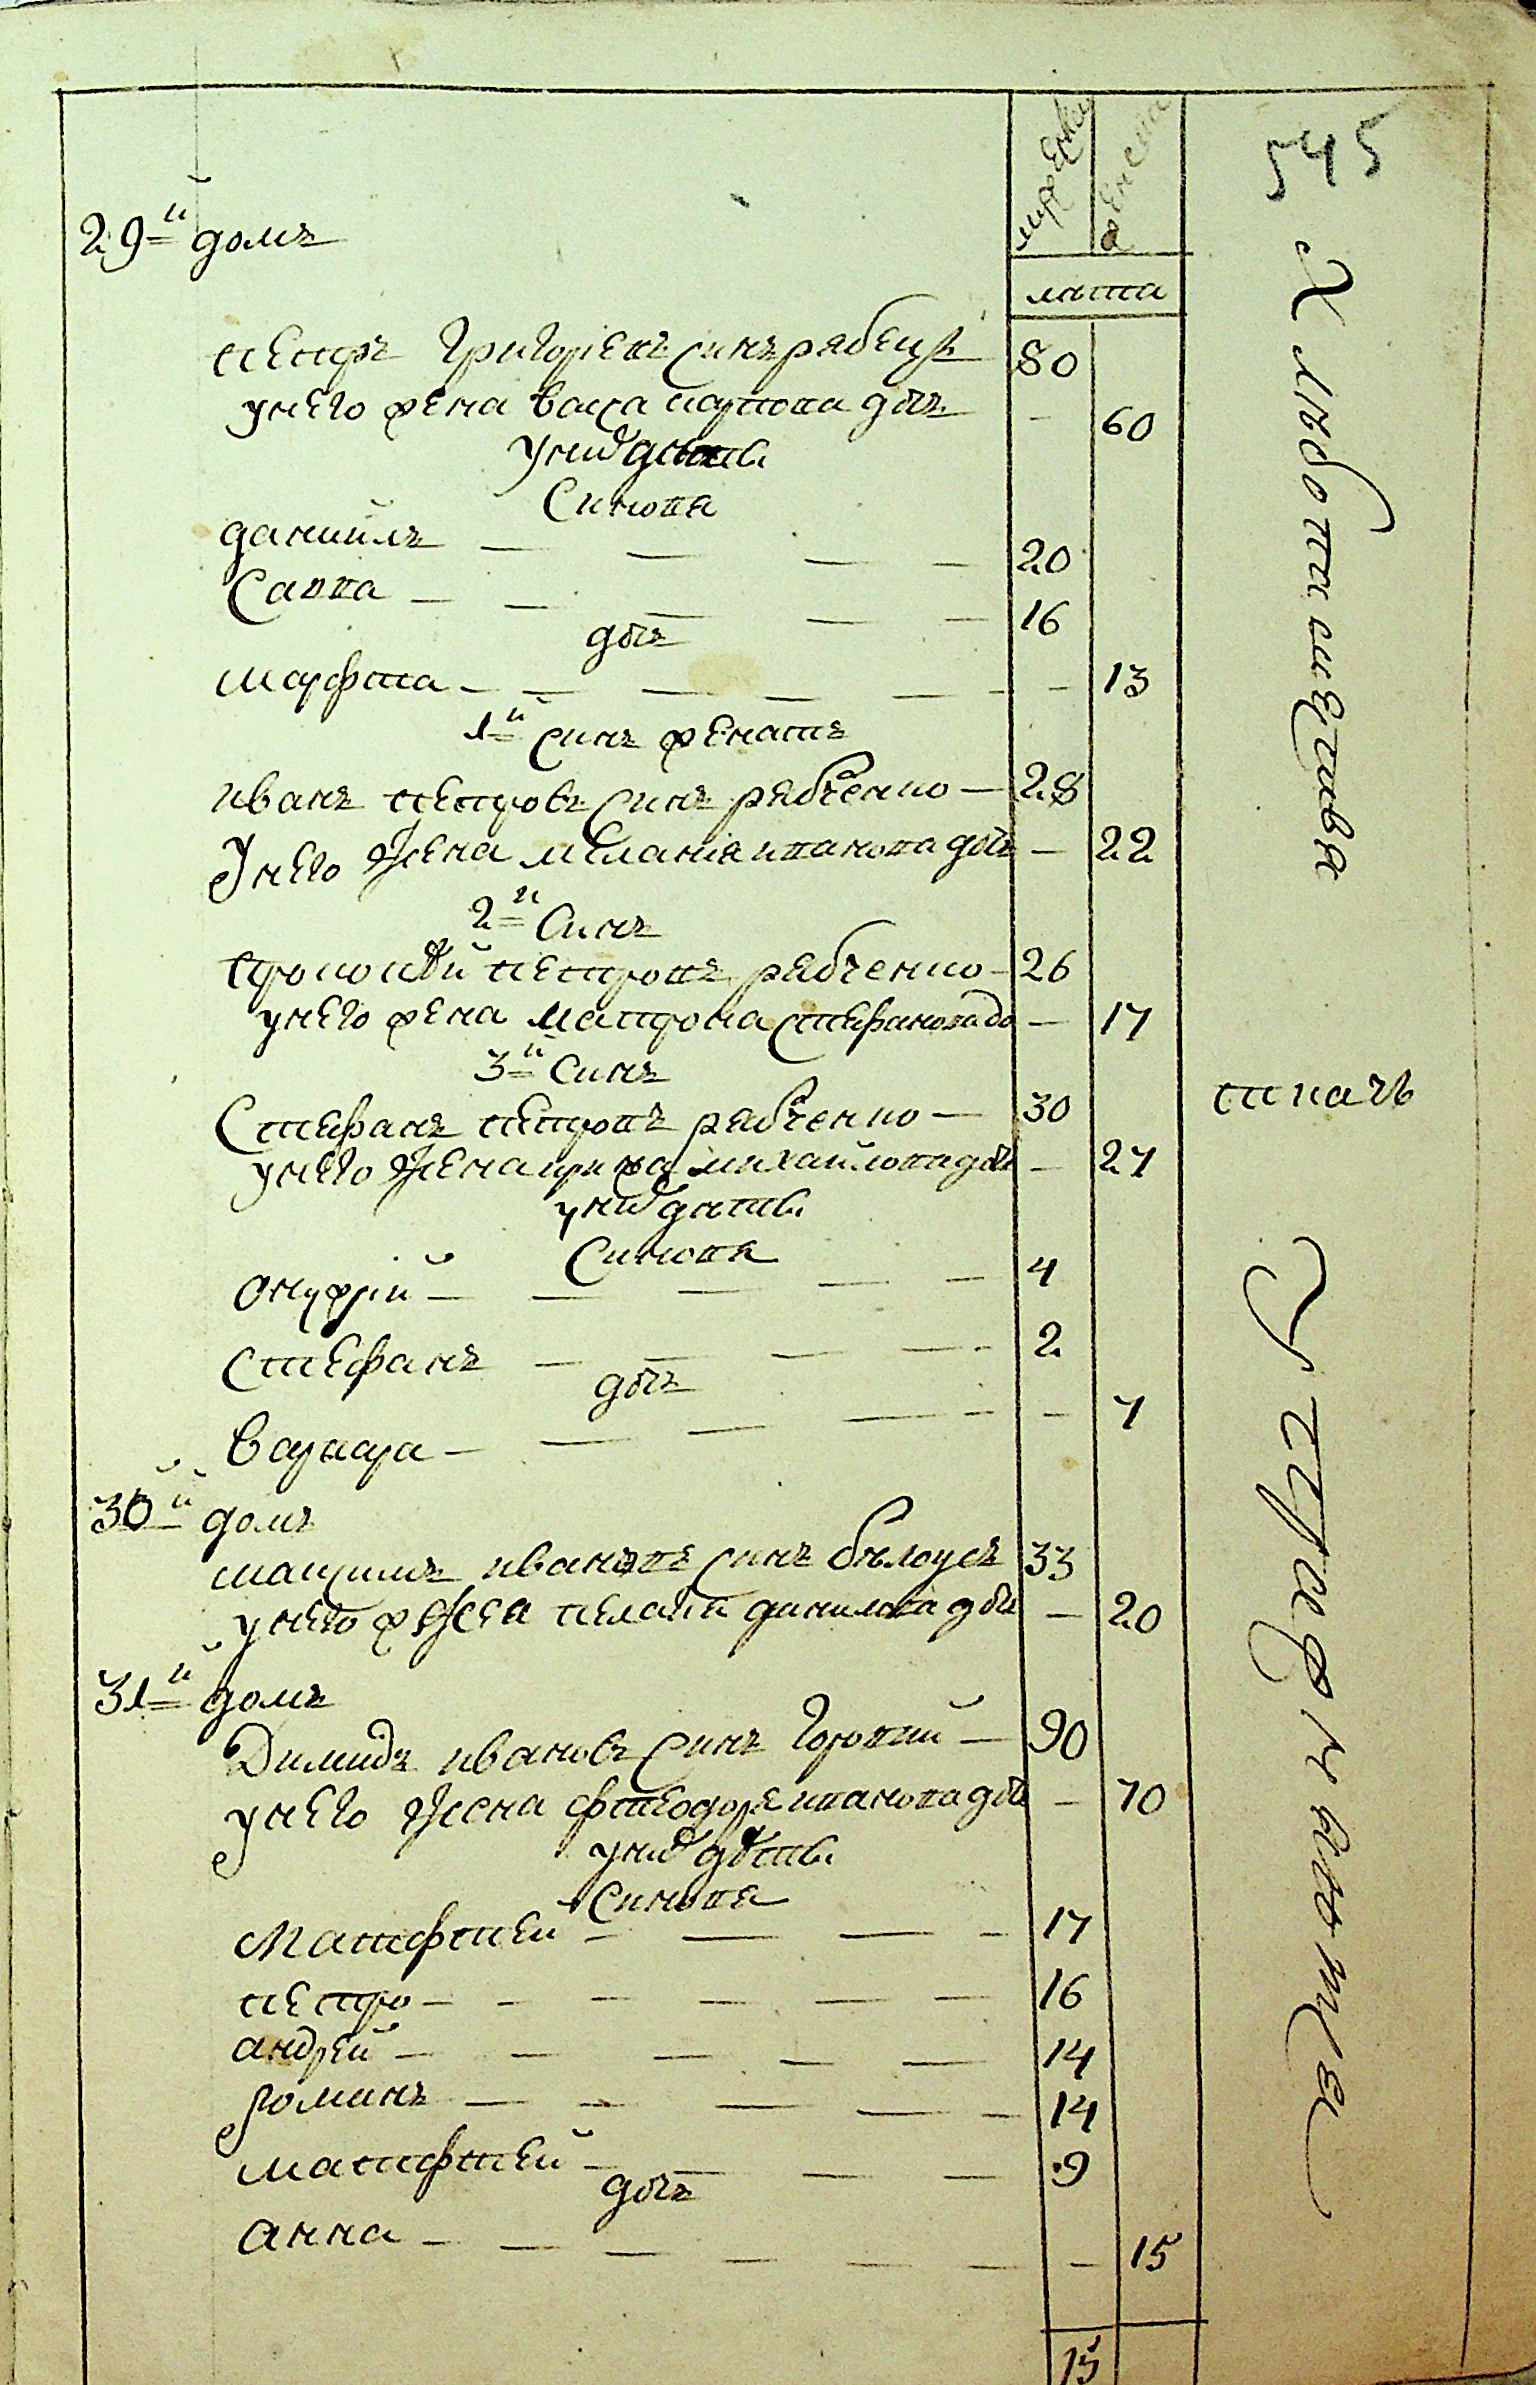 545
мужеска
женска
лѣта
29й домъ
петръ Григориевъ синъ рябецъ 80
у него жена васа карпова дочъ — 60
у них дѣти
Синовя
даниилъ — — — — 20
Савва — — — — — 16
дочъ
марфта — — — — — — 13
1й синъ женатъ
иванъ петровъ синъ рябченко — 28
У него жена мелания иванова дочъ — 22
2й Синъ
прокопий петровъ рябченко — 26
у него жена матрона стефанова до — 17
3й Синъ
Стефанъ петровъ рябченко — 30
ткачь
у него жена ирина михайлова дочъ — 27
у них дѣти
Синовя
онуфрій — — — — — 4
Стефанъ — — — — — 2
дочъ
варвара — — — — — 7
30й домъ
максимъ ивановъ синъ бѣлоусъ 33
у него жена пелагия данилова дочъ — 20
31й домъ
Димидъ ивановъ синъ Горовий — 90
у него жена фтеодоря иванова дочъ — 70
у них дѣти
Синовя
Матфтей — — — — 17
петро — — — — — — 16
андрей — — — — — 14
романъ — — — — — 14
матфтей — — — — 9
дочъ
анна — — — — — — — 15
15
Хлѣбопашествя